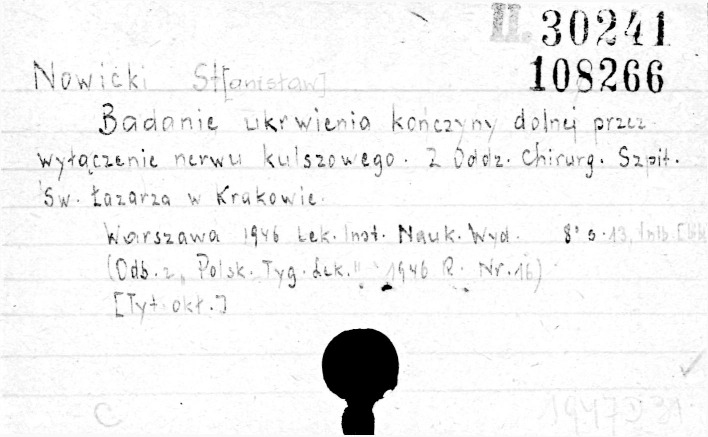 II. 30241
108266
Nowicki St[anisław]
Badanie ukrwienia kończyny dolnej przez
wyłączenie nerwu kulszowego. Z Oddz. Chirurg. Szpit.
Św. Łazarza w Krakowie.
Warszawa 1946 Lek. Inst. Nauk. Wyd. 8° s. 13, 1 nlb.
(Odb. z „Polsk. Tyg. Lek." 1946 R. Nr. 16)
[Tyt. okł.]
C
1947 D 31